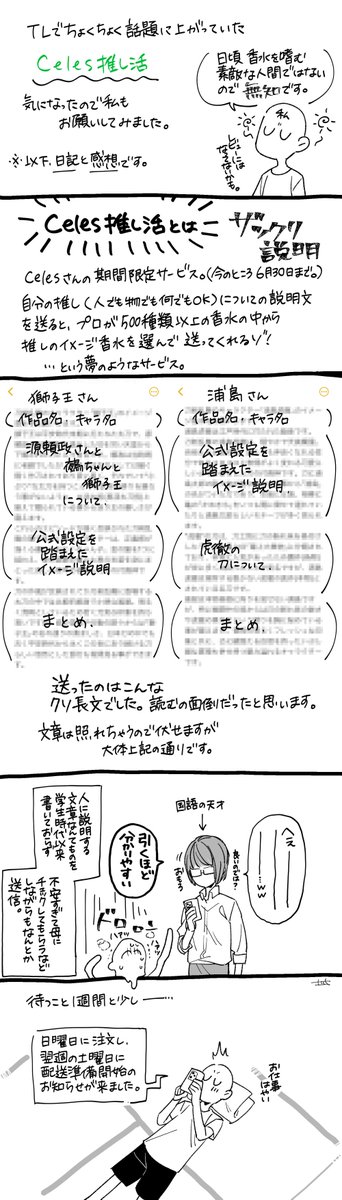 TLでちょくちょく話題に上がっていた
Celes推し活
気になったので私も
お願いしてみました。
※以下、日記と感想です。
日頃香水を嗜む
素敵な人間ではない
ので無知です。
私
Celes推し活とは
ザックリ
説明
Celesさんの期間限定サービス。(今のところ6月30日まで。)
自分の推し(人でも物でも何でもOK)についての説明文
を送ると、プロが500種類以上の香水の中から
推しのイメージ香水を選んで送ってくれるゾ!
…という夢のようなサービス。
獅子王さん
作品名・キャラ名
源頼政さんと
鵺ちゃんと
獅子王
について.
公式設定を
踏まえた
イメージ説明
まとめ.
浦島さん
作品名・キャラ名
公式設定を
踏まえた
イメージ説明.
虎徹の
刀について.
まとめ.
送ったのはこんな
クソ長文でした。読むの面倒だったと思います。
文章は照れちゃうので伏せますが
大体上記の通りです。
人に説明する
文章なんてものを
学生時代以来
書いておらず
不安すぎて母に
チェックしてもらうなど
しながらもなんとか
送信。
国語の天才
へぇ
…ww
良いのでは?
おもろ
引くほど
分かりやすい
ドロ
ハァッ
ハァッ
待つこと1週間と少し―…
日曜日に注文し、
翌週の土曜日に
配送準備開始の
お知らせが来ました。
お仕事
はやい